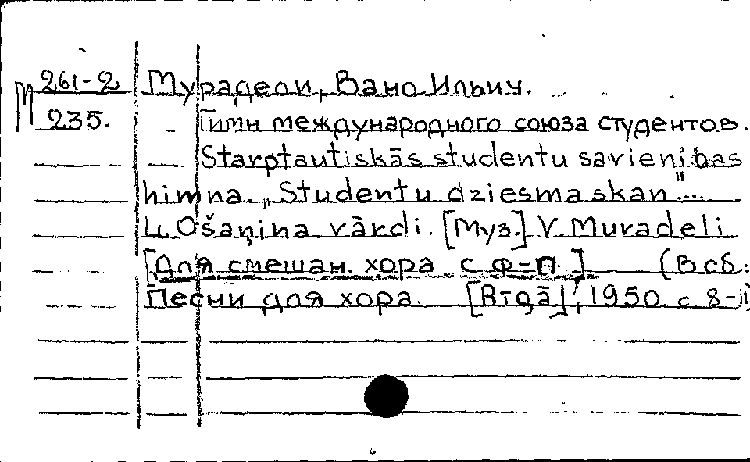 261-2 Мурадели, Вано Ильич.
М 235. Гимн международного союза студентов.
Starptautiskās studentu savienības
himna. „Studentu dziesma skan"...
L. Ošaņina vārdi. [Муз.] V. Muradeli
[Для смешан. хора с ф-п.] (В сб.:
Песни для хора. [Rīgā], 1950 с 8-11